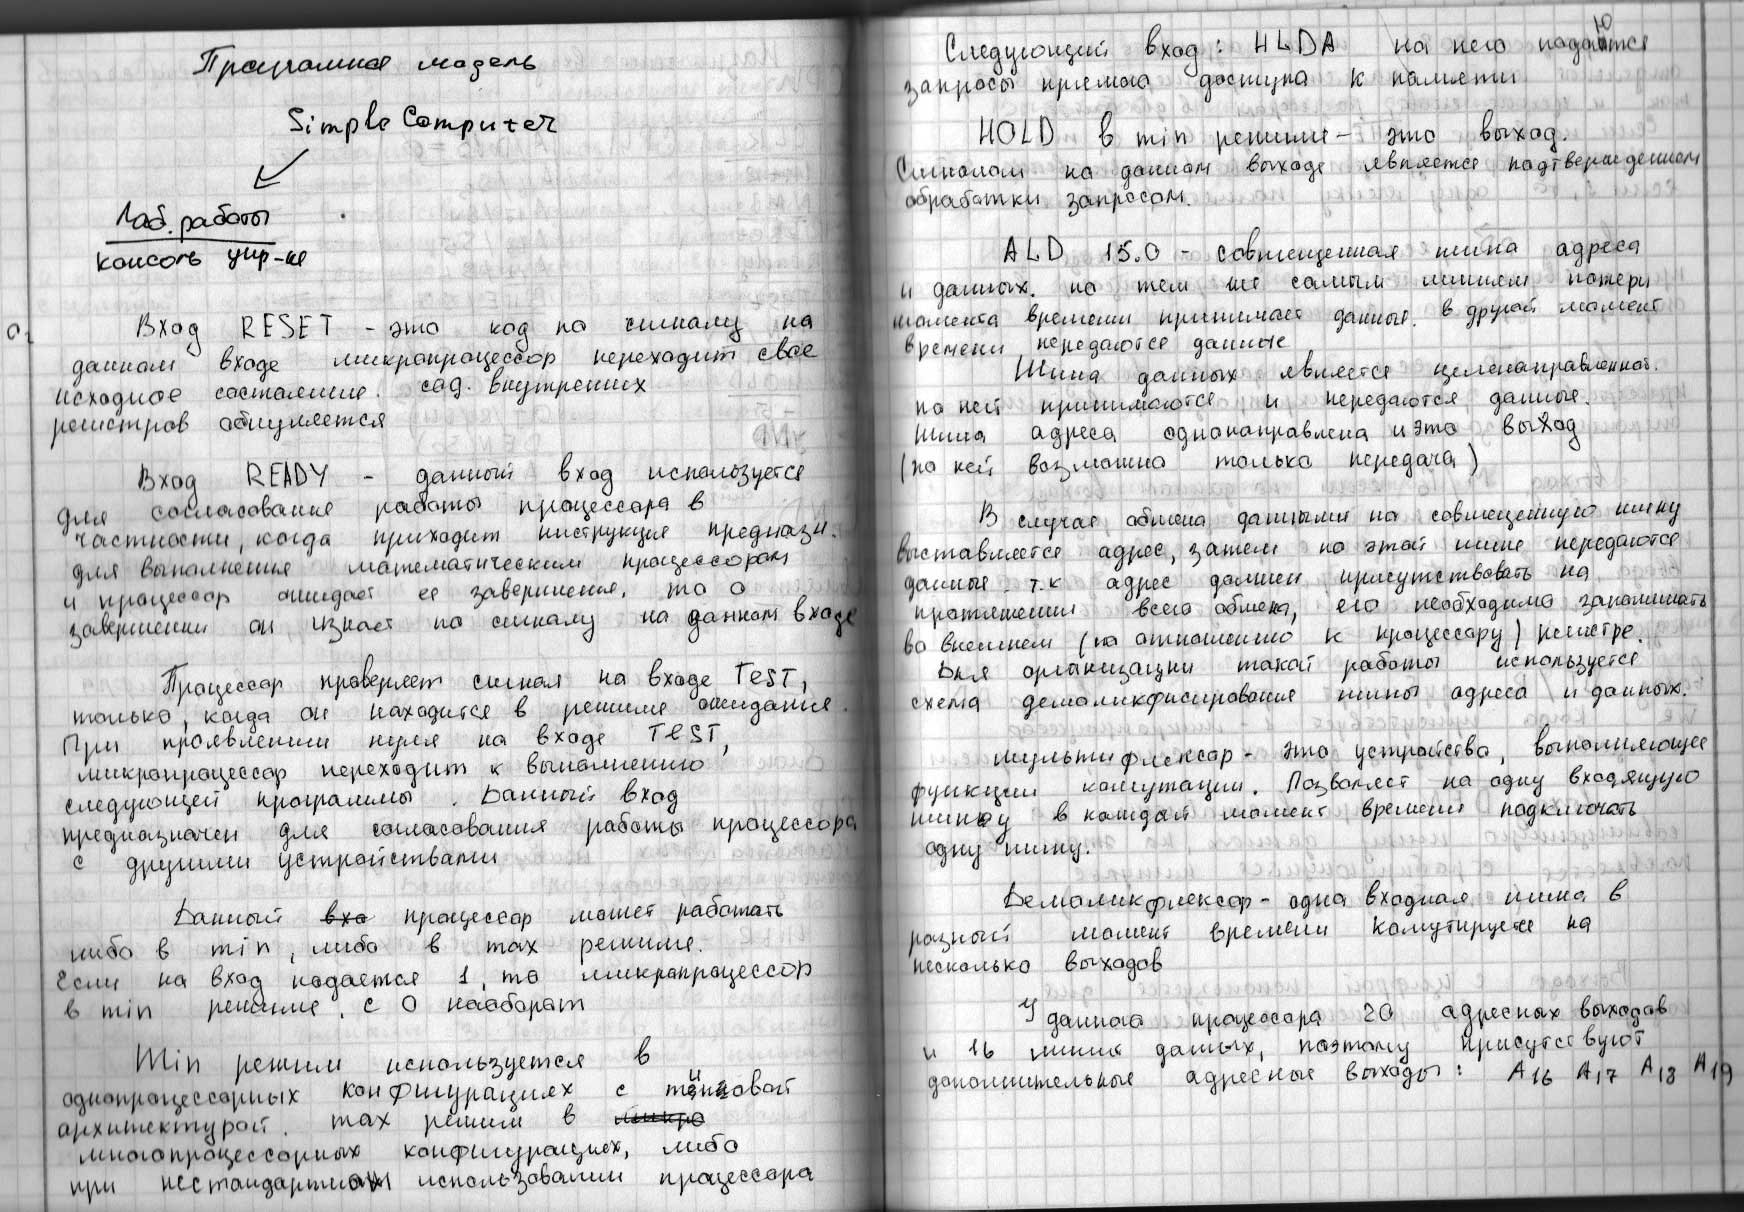 Програмная модель
Simple Computer
Лаб. работы
консоль упр-ие
Вход RESET - это код по сигналу на
данном входе микропроцессор переходит свое
исходное состояние. сод. внутренних
регистров обнуляется
Вход READY - данный вход используется
для согласование работы процессора в
частности, когда приходит инструкция предназн.
для выполнения математическим процессором
и процессор ожидает ее завершения, то о
завершении он узнает по сигналу на данном входе
Процессор проверяет сигнал на входе TEST,
только, когда он находится в режиме ожидания.
При проявлении нуля на входе TEST,
микропроцессор переходит к выполнению
следующей программы. Данный вход
предназначен для согласования работы процессора
с другими устройствами
Данный вхо процессор может работать
либо в min, либо в max режиме.
Если на вход подается 1, то микропроцессор
в min режиме, с 0 наоборот
Min режим используется в
однопроцессорных конфигурациях с
архитектурой. max режим в микро
многопроцессорных конфигурациях, либо
при нестандартном использовании процессора
Следующий вход: HLDA на него подаются
запросы прямого доступа к памяти
HOLD в min режиме - это выход.
Сигналом на данном выходе является подтверждением
обработки запросом.
ALD 15.0 - совмещенная шина адреса
и данных. по тем же самым линиям
момента времени принимает данные. в другой момент
времени передаются данные
Шина данных является целенаправленной.
по ней принимаются и передаются данные.
Шина адреса однонаправлена и это выход
(по ней возможно только передача)
В случае обмена данными на совмещенную шину
выставляется адрес, затем по этой шине передаются
данные. т.к адрес должен присутствовать на
протяжении всего обмена, его необходимо запоминать
во внешнем (по отношению к процессору) регистре.
Для организации такой работы используется
схема демоликфисирования шины адреса и данных.
мультифлексор - это устройство, выполняющее
функции комутации. Позволяет на одну входящую
шину в каждый момент времени подключать
одну шину.
Демоликфлексор - одна входная шина в
разный момент времени комутируется на
несколько выходов
У данного процессора 20 адресных выходов
и 16 линия данных, поэтому присутствуют
дополнительные адресные выходы: A16 A17 A18 A19